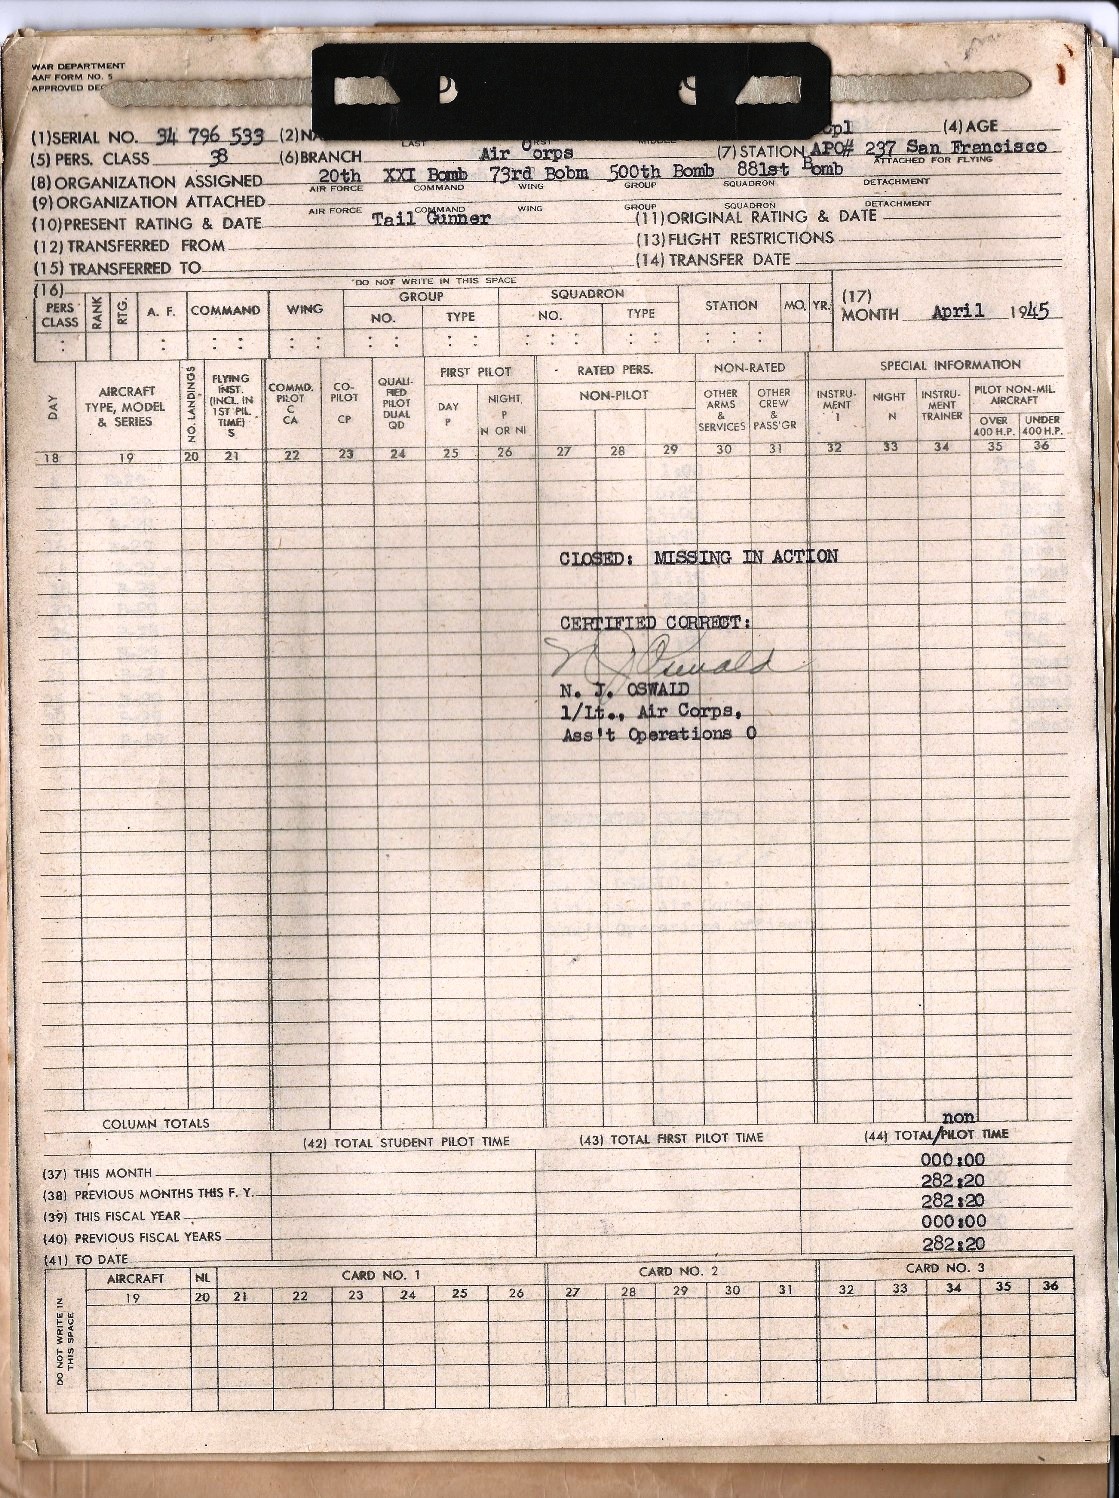 WAR DEPARTMENT
AAF FORM NO. 5
APPROVED
(1) SERIAL NO. 34 796 533 (2) Cpl (4) AGE
LAST FIRST MIDDLE
(5) PERS. CLASS 38 (6) BRANCH Air Corps (7) STATION APO# 237 San Francisco
ATTACHED FOR FLYING
(8) ORGANIZATION ASSIGNED 20th XXI Bomb 73rd Bobm 500th Bomb 881st Bomb
AIR FORCE COMMAND WING GROUP SQUADRON DETACHMENT
(9) ORGANIZATION ATTACHED
AIR FORCE COMMAND WING GROUP SQUADRON DETACHMENT
(10) PRESENT RATING & DATE Tail Gunner (11) ORIGINAL RATING & DATE
(12) TRANSFERRED FROM (13) FLIGHT RESTRICTIONS
(15) TRANSFERRED TO (14) TRANSFER DATE
(16) DO NOT WRITE IN THIS SPACE
PERS CLASS RANK RTG. A. F. COMMAND WING GROUP NO. TYPE SQUADRON NO. TYPE STATION MO. YR. (17) MONTH April 1945
DAY AIRCRAFT TYPE, MODEL & SERIES NO. LANDINGS FLYING INST. (INCL. IN 1ST PIL. TIME) S COMMD. PILOT C CA CO-PILOT CP QUALI-FIED PILOT DUAL QD FIRST PILOT DAY P NIGHT P N OR NI RATED PERS. NON-PILOT NON-RATED OTHER ARMS & SERVICES OTHER CREW & PASS'GR SPECIAL INFORMATION INSTRU-MENT I NIGHT N INSTRU-MENT TRAINER PILOT NON-MIL. AIRCRAFT OVER 400 H.P. UNDER 400 H.P.
18 19 20 21 22 23 24 25 26 27 28 29 30 31 32 33 34 35 36
CLOSED: MISSING IN ACTION
CERTIFIED CORRECT:
N J Oswald
N. J. OSWALD
1/Lt., Air Corps,
Ass't Operations O
COLUMN TOTALS
non
(42) TOTAL STUDENT PILOT TIME (43) TOTAL FIRST PILOT TIME (44) TOTAL/PILOT TIME
(37) THIS MONTH 000:00
(38) PREVIOUS MONTHS THIS F. Y. 282:20
(39) THIS FISCAL YEAR 282:20
(40) PREVIOUS FISCAL YEARS 000:00
(41) TO DATE 282:20
DO NOT WRITE IN THIS SPACE
AIRCRAFT NL CARD NO. 1 CARD NO. 2 CARD NO. 3
19 20 21 22 23 24 25 26 27 28 29 30 31 32 33 34 35 36